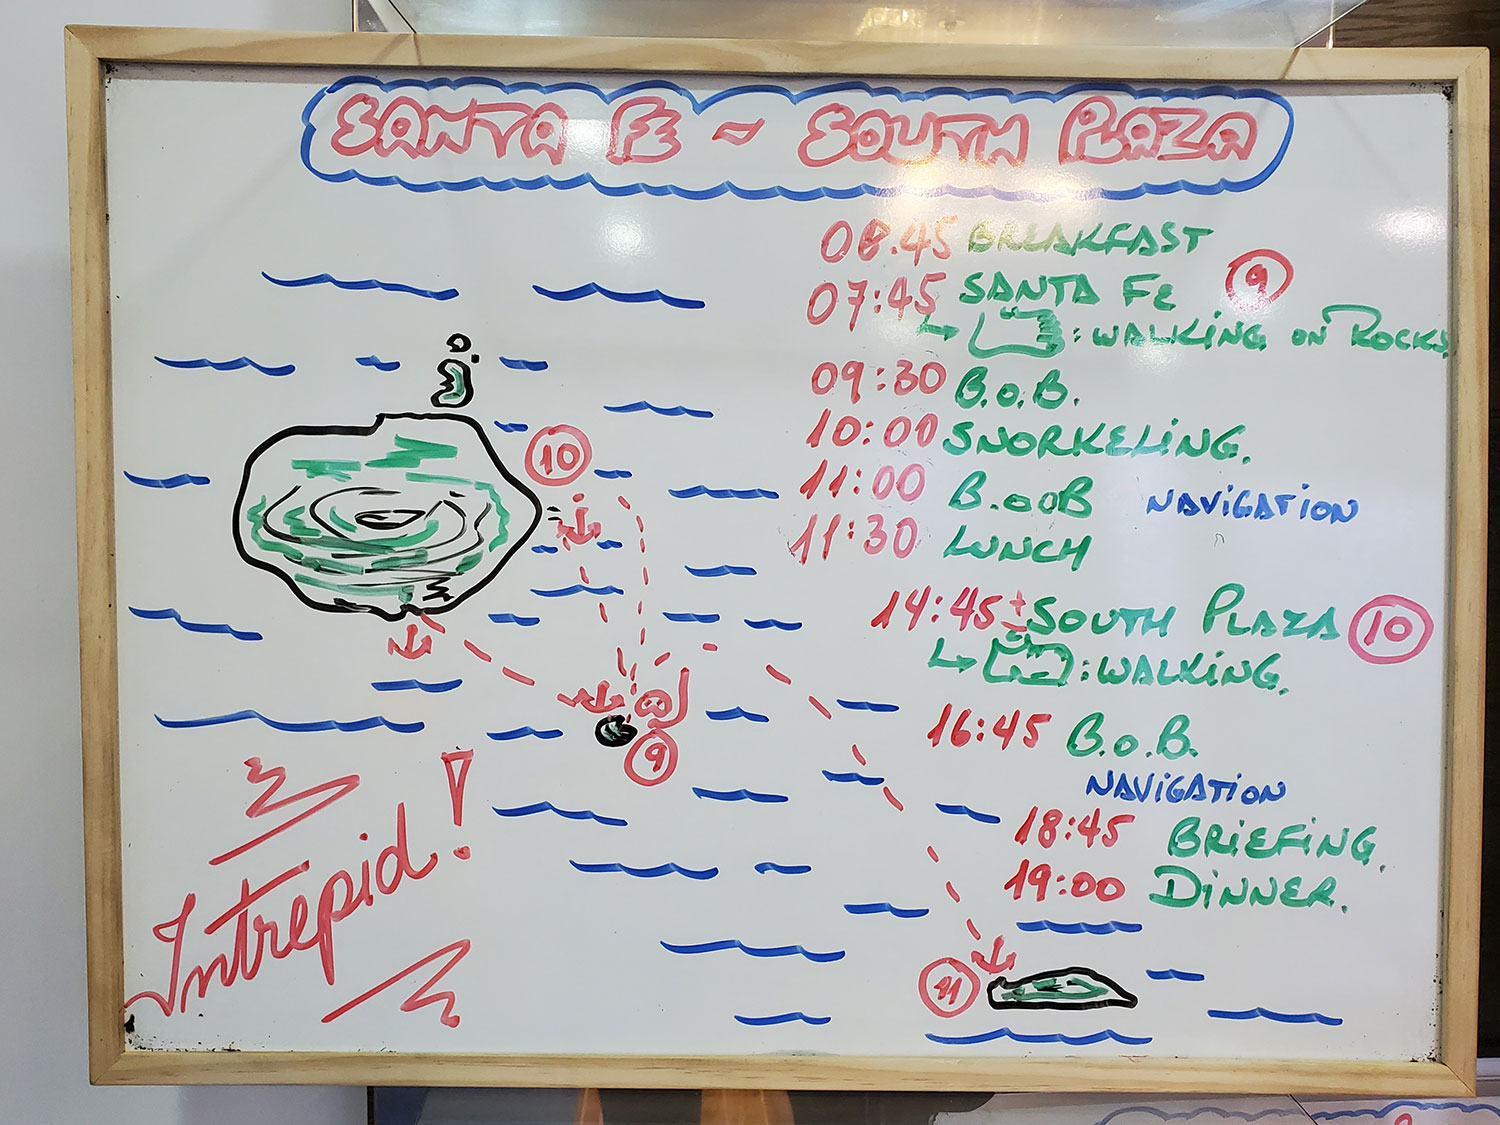 SANTA FE - SOUTH PLAZA
08.45 BREAKFAST
07:45 SANTA FE 9
: WALKING ON ROCKS
09:30 B.O.B.
10:00 SNORKELING.
11:00 B.OOB NAVIGATION
11:30 LUNCH
14:45± SOUTH PLAZA 10
: WALKING.
16:45 B.O.B.
NAVIGATION
18:45 BRIEFING.
19:00 DINNER.
10
9
11
Intrepid!